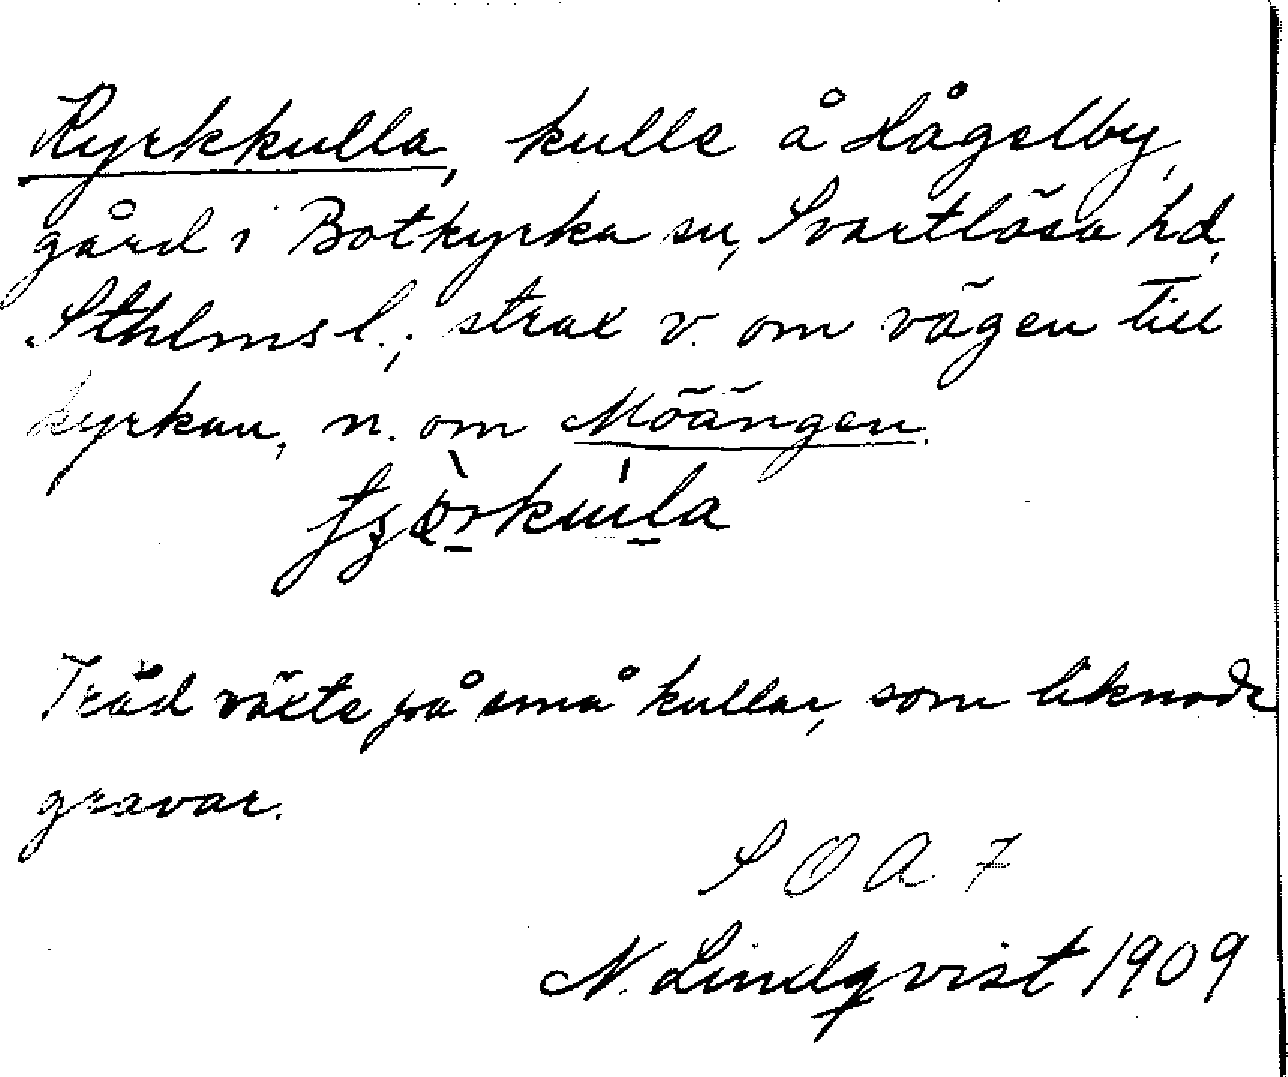 Kyrkkulla, kulle å Hågelby,
gård i Botkyrka sn, Svartlösa hd,
Sthlms l.; strax v. om vägen till
kyrkan, n. om Möängen.
Träd växte på små kullar, som liknade
gravar.
S O A 7
N. Lindqvist 1909